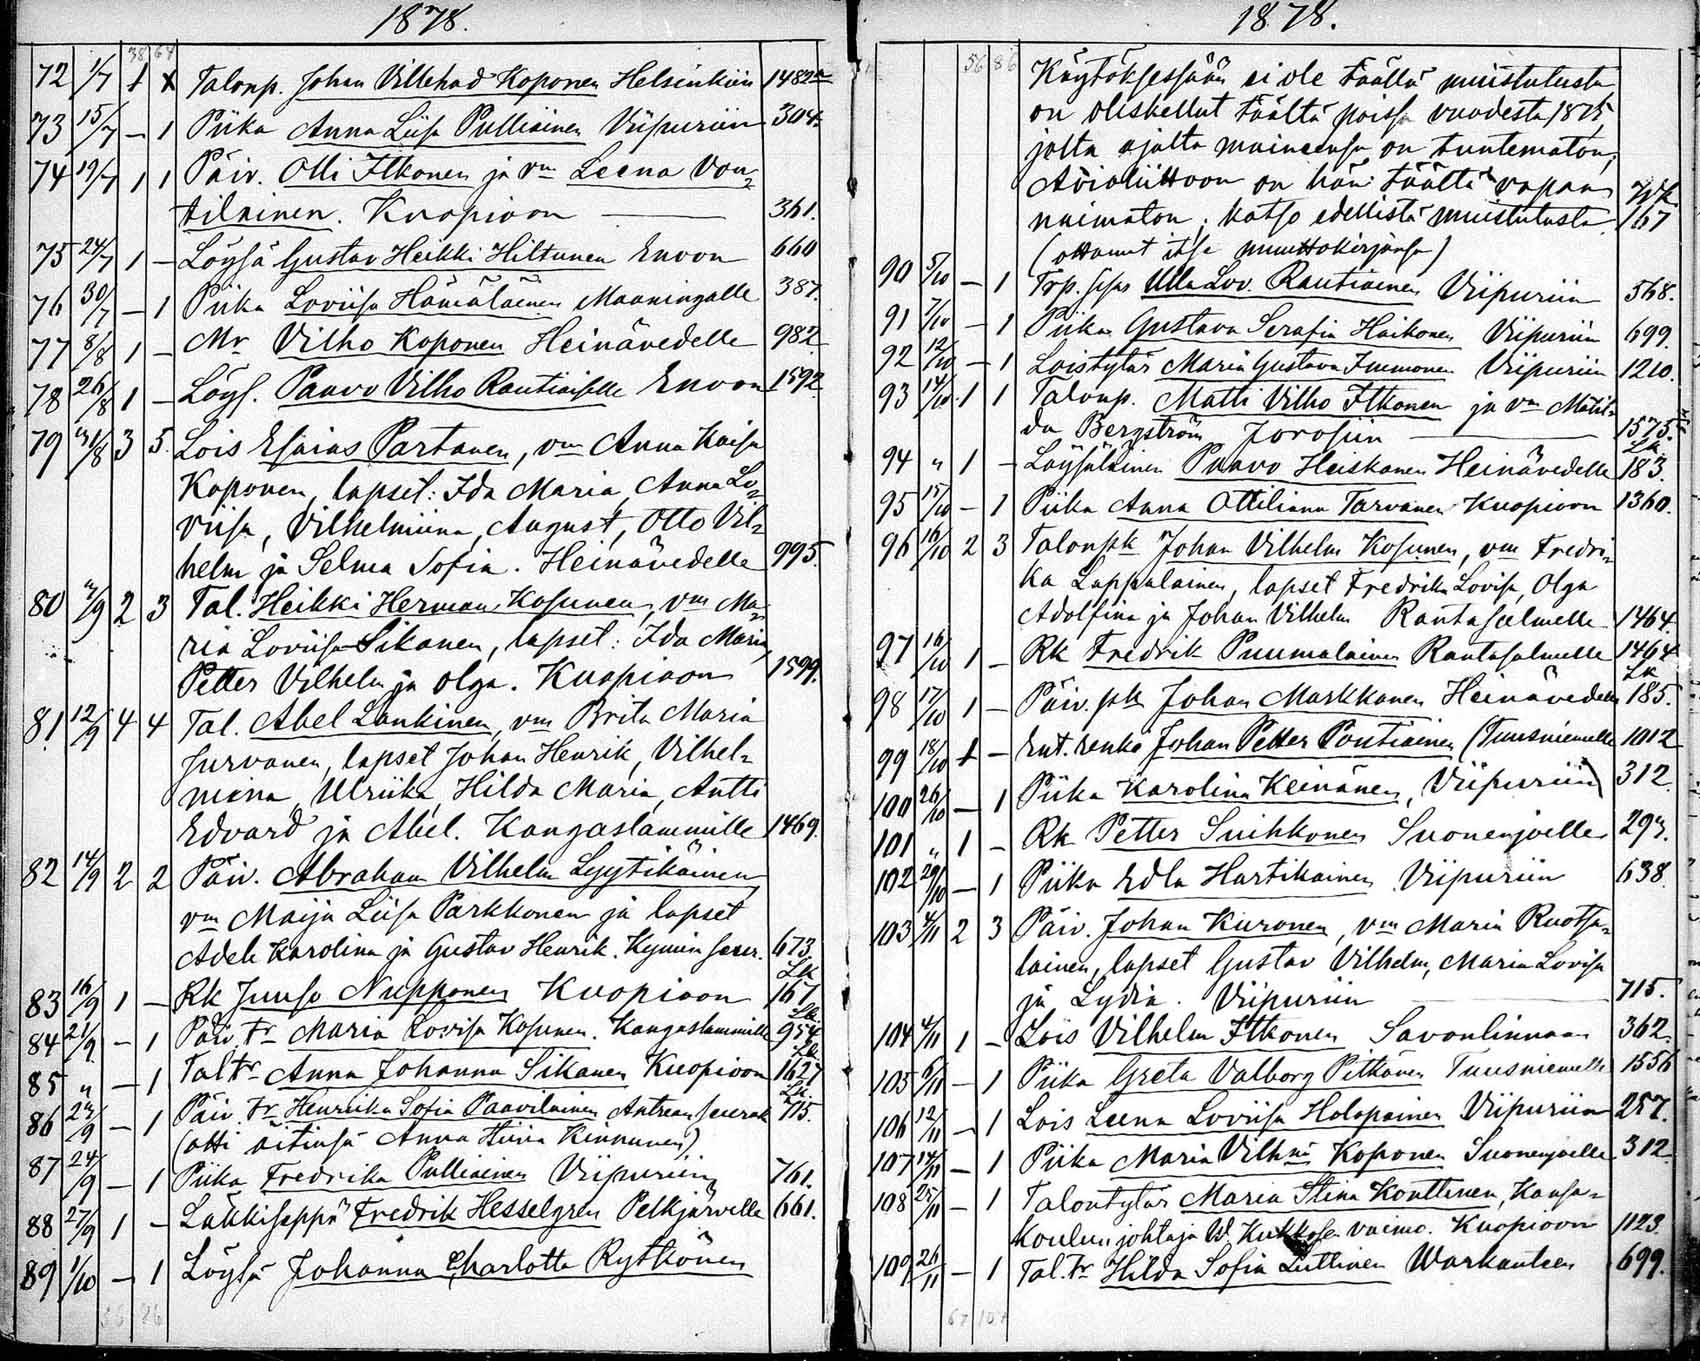 1878.
38 64
72 1/7 1 x Talonp. Johan Villehad Koponen Helsinkiin 1482
73 15/7 – 1 Piika Anna Liisa Pulliainen Viipuriin 304.
74 19/7 1 1 Päiv. Olli Itkonen ja vm Leena Von-
tilainen. Kuopioon — 361.
75 24/7 1 – Löysä Gustav Heikki Hiltunen Enoon 660
76 30/7 – 1 Piika Loviisa Hämäläinen Maaningalle 387.
77 8/8 1 – Mr Vilho Koponen Heinävedelle 982.
78 26/8 1 – Löys. Paavo Vilho Rautiaiselle Enoon 1592.
79 31/8 3 5. Lois Esaias Partanen, vm Anna Kaisa
Koponen, lapset: Ida Maria, Anna Lo-
viisa, Vilhelmiina, August, Otto Vil-
helm ja Selma Sofia. Heinävedelle 995.
80 /9 2 3 Tal. Heikki Herman Kosunen, vm Ma-
ria Loviisa Sikanen, lapset: Ida Maria,
Petter Vilhelm ja Olga. Kuopioon 1599.
81 12/9 4 4 Tal. Abel Lankinen, vm Brita Maria
Survanen, lapset Johan Henrik, Vilhel-
miina, Ulriika, Hilda Maria, Antti
Edvard ja Abel. Kangaslammille 1469.
82 14/9 2 2 Päiv. Abraham Vilhelm Lyytikäinen
vm Maija Liisa Parkkonen ja lapset
Adele Karolina ja Gustav Henrik. Kymin seur. 673.
83 16/9 1 – Rk Juuso Nupponen Kuopioon Lk 167
84 21/9 – 1 Päiv. tr Maria Lovisa Kosunen. Kangaslammille Lk 954
85 " – 1 Tal tr Anna Johanna Sikanen Kuopioon Lk 1627
86 23/9 – 1 Päiv. tr Henriika Sofia Paavilainen Antrean seurak Lk. 715.
(otti äitinsä Anna Stiina Kinnunen)
87 24/9 – 1 Piika Fredrika Pulliainen Viipuriin 761.
88 27/9 1 – Läkkiseppä Fredrik Hesselgren Pelkjärvelle 661.
89 1/10 – 1 Löysä Johanna Charlotta Rytkönen
1878.
56 86
Käytöksessään ei ole täällä muistutusta
on oleskellut täältä poissa vuodesta 1875,
jolta ajalta maineensa on tuntematon;
Avioliittoon on hän täältä vapaa
naimaton; katso edellistä muistutusta. 167
(ottanut itse muuttokirjansa)
90 5/10 – 1 Trp. Ulla Lov. Rautiainen Viipuriin 568.
91 7/10 – 1 Piika Gustava Serafia Haikonen Viipuriin 699.
92 12/10 – 1 Loistytär Maria Gustava Immonen Viipuriin 1210.
93 14/10 1 1 Talonp. Matti Vilho Itkonen ja vm Matil-
da Bergström Joroisiin — 1575.
94 " 1 – Löysäläinen Paavo Heiskanen Heinävedelle Lk 183.
95 15/10 – 1 Piika Anna Ottiliana Tarvanen Kuopioon 1360.
96 16/10 2 3 Talonpk Johan Vilhelm Kosunen, vm Fredri-
ka Lappalainen, lapset Fredrika Lovisa, Olga
Adolfina ja Johan Vilhelm Rantasalmelle 1464.
97 16/10 1 – Rk Fredrik Puumalainen Rantasalmelle 1464
98 17/10 1 – Päiv. pk Johan Markkanen Heinävedelle Lk 185.
99 18/10 1 – Ent. renki Johan Petter Pontiainen (Tuusniemelle 1012
100 26/10 – 1 Piika Karolina Keinänen, Viipuriin) 312
101 " 1 – Rk Petter Suihkonen Suonenjoelle 297.
102 29/10 – 1 Piika Edla Hartikainen Viipuriin 638.
103 4/11 2 3 Päiv. Johan Kuronen, vm Maria Ruotsa-
lainen, lapset Gustav Vilhelm, Maria Lovisa
ja Lydia. Viipuriin — 715.
104 4/11 1 – Lois Vilhelm Itkonen Savonlinnaan 362.
105 6/11 – 1 Piika Greta Valborg Pitkänen Tuusniemelle 1556
106 12/11 – 1 Lois Leena Loviisa Holopainen Viipuriin 257.
107 14/11 – 1 Piika Maria Vilhma Koponen Suonenjoelle 312
108 25/11 – 1 Talontytär Maria Stina Konttinen, Kansa-
koulun johtaja W. Kukkosen vaimo. Kuopioon 1123.
109 26/11 – 1 Tal. tr Hilda Sofia Luttinen Warkauteen 699.